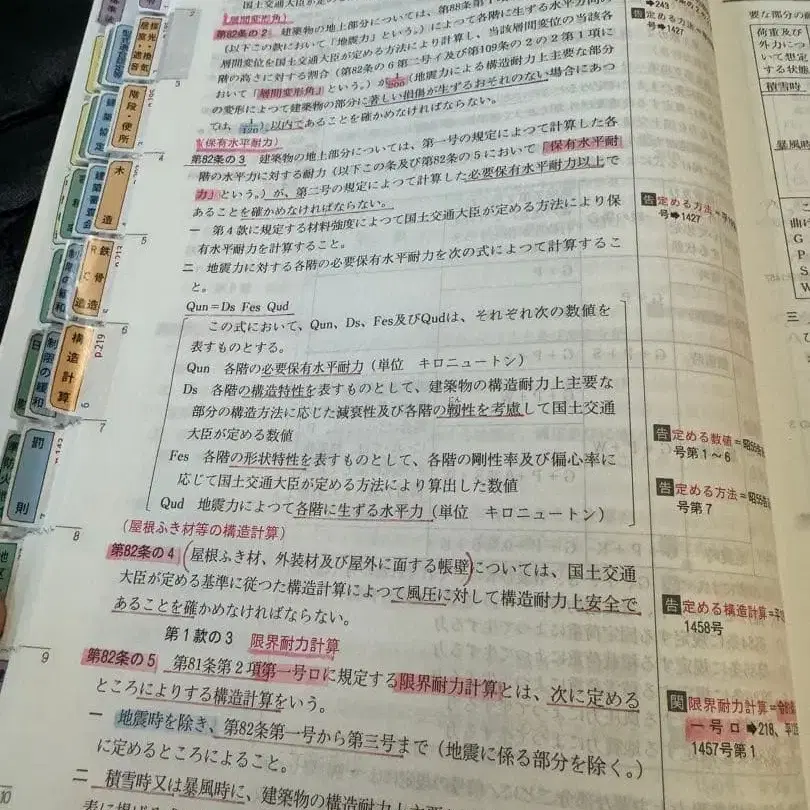 国土交通大臣が定め
(層間変形角)
第82条の2 建築物の地上部分については、第88条第1
(以下この款において「地震力」という。)によつて各階に生ずる水平方向の
層間変位を国土交通大臣が定める方法により計算し、当該層間変位の当該各
階の高さに対する割合(第82条の6第二号イ及び第109条の2の2第1項に
おいて「層間変形角」という。)が1/200(地震力による構造耐力上主要な部分
の変形によつて建築物の部分に著しい損傷が生ずるおそれのない場合にあつ
ては、1/120)以内であることを確かめなければならない。
(保有水平耐力)
第82条の3 建築物の地上部分については、第一号の規定によつて計算した各
階の水平力に対する耐力(以下この条及び第82条の5において「保有水平耐
力」という。)が、第二号の規定によつて計算した必要保有水平耐力以上で
あることを確かめなければならない。
一 第4款に規定する材料強度によつて国土交通大臣が定める方法により保
有水平耐力を計算すること。
二 地震力に対する各階の必要保有水平耐力を次の式によつて計算するこ
と。
Qun=Ds Fes Qud
この式において、Qun、Ds、Fes及びQudは、それぞれ次の数値を
表すものとする。
Qun 各階の必要保有水平耐力(単位 キロニュートン)
Ds 各階の構造特性を表すものとして、建築物の構造耐力上主要な
部分の構造方法に応じた減衰性及び各階の靱性を考慮して国土交通
じん
大臣が定める数値
Fes 各階の形状特性を表すものとして、各階の剛性率及び偏心率に
応じて国土交通大臣が定める方法により算出した数値
Qud 地震力によつて各階に生ずる水平力(単位 キロニュートン)
(屋根ふき材等の構造計算)
第82条の4 屋根ふき材、外装材及び屋外に面する帳壁については、国土交通
大臣が定める基準に従つた構造計算によつて風圧に対して構造耐力上安全で
あることを確かめなければならない。
第1款の3 限界耐力計算
第82条の5 第81条第2項第一号ロに規定する限界耐力計算とは、次に定める
ところによりする構造計算をいう。
一 地震時を除き、第82条第一号から第三号まで(地震に係る部分を除く。)
に定めるところによること。
二 積雪時又は暴風時に、建築物の構造耐力上主要
➡243
告定める方法=
➡1427
告定める方法=平
➡1427
告定める数値=昭55
号第1~6
告定める方法=昭55
号第7
告定める構造計算=平
1458号
関限界耐力計算=
一号ロ➡218、平
1457号第1
採光・換気
居室・遮音
階段・便所
建築協定
木造
建築審査会
鉄骨造
RC造
制限の緩和
構造計算
p219
罰則
4
5
6
7
8
9
10
要な部分の
荷重及び
外力につ
いて想定
する状態
積雪時
暴風時
G
P
S
W
三